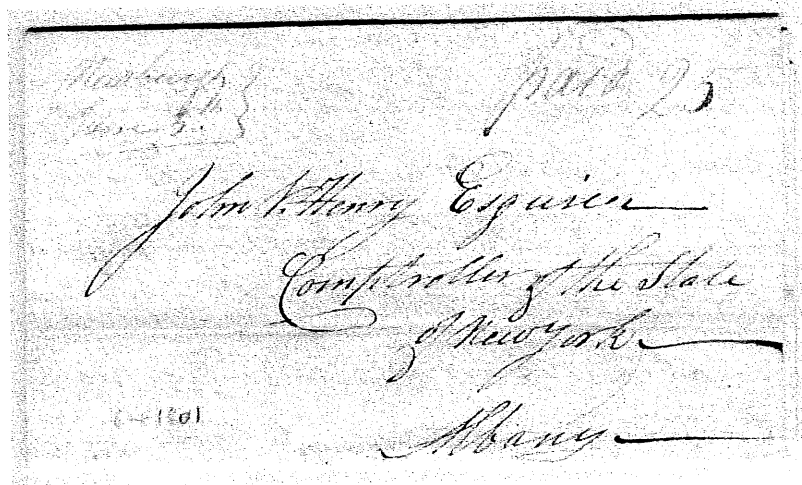 Newburgh
June 5th
paid 25
John V. Henry Esquire
Comptroller of the State
of New York
Albany
1801